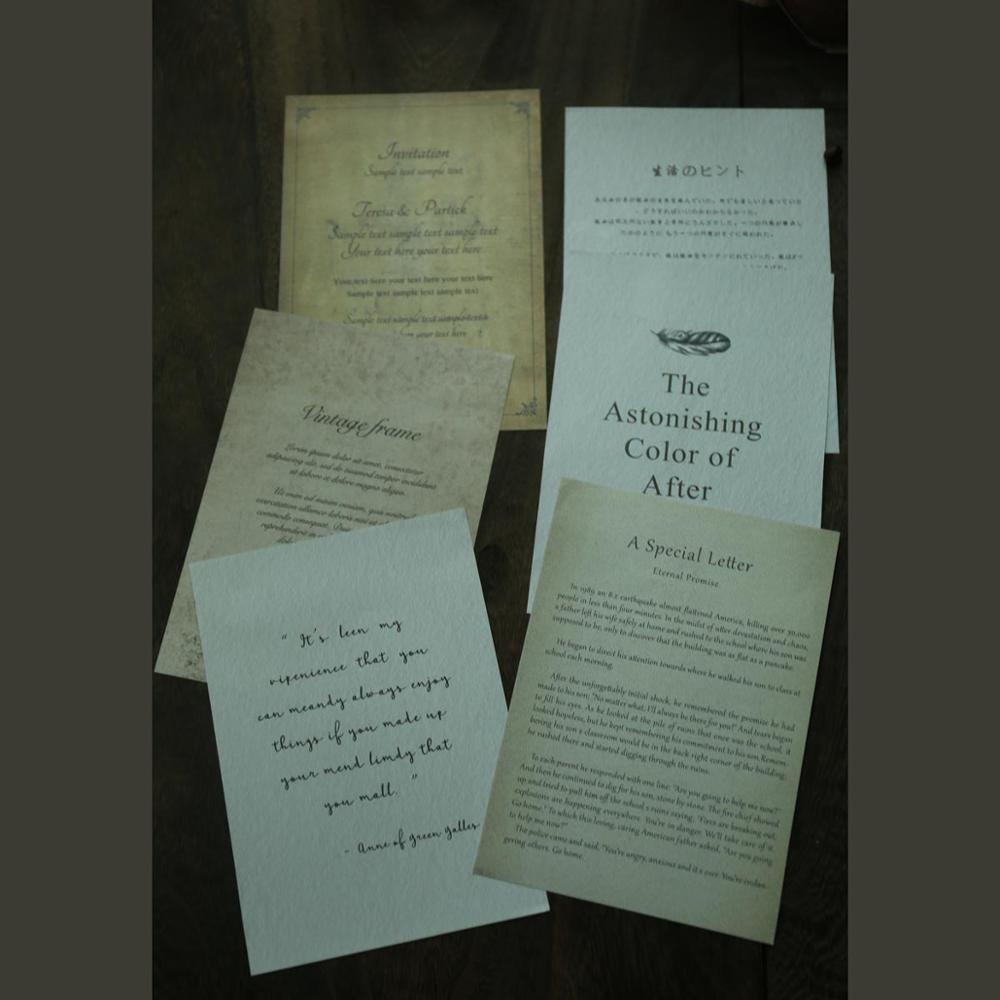 Invitation
Sample text sample text
Teresa & Partick
Sample text sample text sample text
Your text here your text here
Your text here your text here your text here
Sample text sample text sample text
Sample text sample text sample text
your text here
生活のヒント
The
Astonishing
Color of
After
Vintage frame
Lorem ipsum dolor sit amet, consectetur
adipiscing elit, sed do eiusmod tempor incididunt
ut labore et dolore magna aliqua.
Ut enim ad minim veniam, quis nostrud
exercitation ullamco laboris nisi ut al
commodo consequat. Duis
reprehenderit in
dolo
" It's leen my
vipenience that you
can meandy always enjoy
things if you made up
your mend limdy that
you mall. "
- Anne of Green Galles
A Special Letter
Eternal Promise
In 1989 an 8.2 earthquake almost flattened America, killing over 30,000
people in less than four minutes. In the midst of utter devastation and chaos,
a father left his wife safely at home and rushed to the school where his son was
supposed to be, only to discover that the building was as flat as a pancake.
He began to direct his attention towards where he walked his son to class at
school each morning.
After the unforgettably initial shock, he remembered the promise he had
made to his son: "No matter what, I'll always be there for you!" And tears began
to fill his eyes. As he looked at the pile of ruins that once was the school, it
looked hopeless, but he kept remembering his commitment to his son. Remem-
bering his son's classroom would be in the back right corner of the building;
he rushed there and started digging through the ruins.
To each parent he responded with one line: "Are you going to help me now?"
And then he continued to dig for his son, stone by stone. The fire chief showed
up and tried to pull him off the school's ruins saying, "Fires are breaking out,
explosions are happening everywhere. You're in danger. We'll take care of it.
Go home." To which this loving, caring American father asked, "Are you going
to help me now?"
The police came and said, "You're angry, anxious and it's over. You're endan-
gering others. Go home.